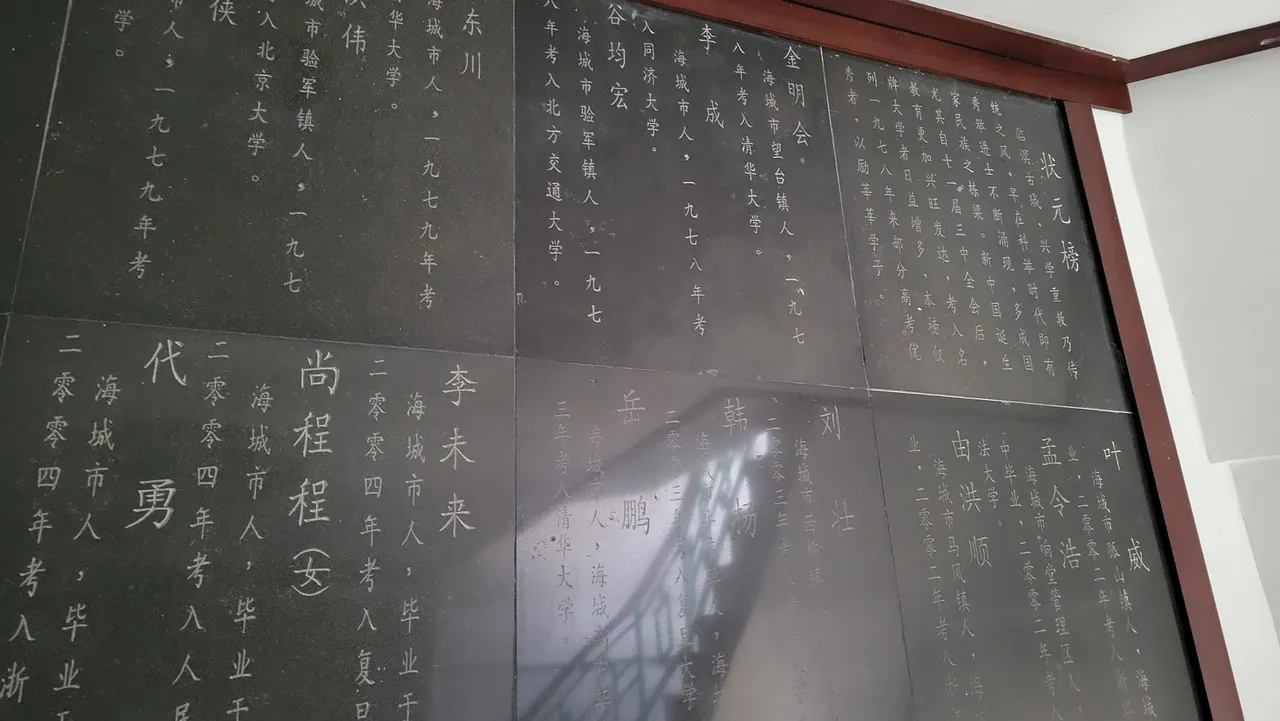 状元榜
临溟古城，兴学重教乃传
统之风，早在科举时代即有
秀举进士不断涌现，多成国
家民族之栋梁。新中国诞生
尤其自十一届三中全会后，
教育更加兴旺发达，考入名
牌大学者日益增多，本榜仅
列一九七八年来部分高考优
秀者，以励莘莘学子。
金明会。
海城市望台镇人，一九七
八年考入清华大学。
李成
海城市人，一九七八年考
入同济大学。
谷均宏
海城市验军镇人，一九七
八年考入北方交通大学。
东川
海城市人，一九七九年考
华大学。
伟
城市验军镇人，一九七
入北京大学。
侠
市人，一九七九年考
学。
叶威
海城市孤山镇人，海城
业，二零零二年考入浙
孟令浩
海城市响堂管理区人，
中毕业，二零零二年考入
法大学。
由洪顺
海城市马风镇人，海
业，二零零二年考入浙
刘壮
海城市
二零零三年考入
韩杨
海
二零零三年 复旦大学
岳鹏
海城市人，海城 年
三年考入清华大学。
李未来
海城市人，毕业于
二零零四年考入复旦
尚程程（女）
海城市人，毕业于
二零零四年考入人民
代勇
海城市人，毕业于
二零零四年考入浙